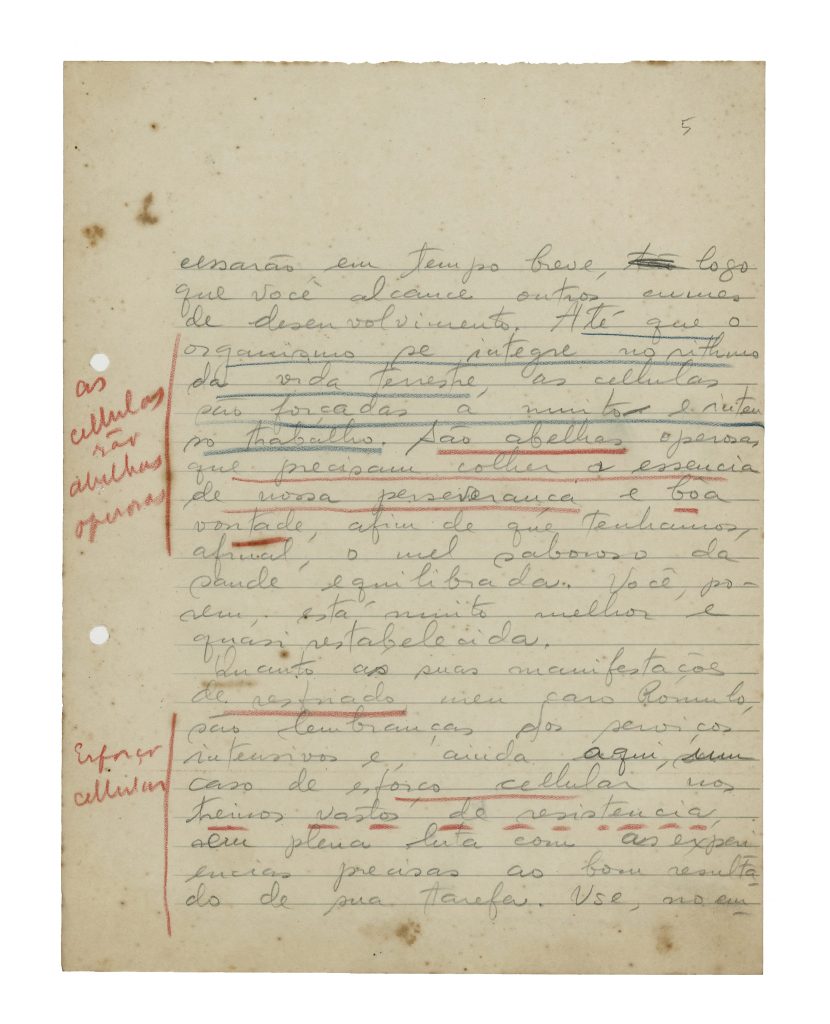 5
cessarão em tempo breve, logo
que você alcance outros cumes
de desenvolvimento. Até que o
organismo se integre no rithmo
da vida terrestre, as cellulas
são forçadas a muito e inten
so trabalho. São abelhas operosas
que precisam colher a essencia
de nossa perseverança e bôa
vontade, afim de que tenhamos,
afinal, o mel saboroso da
saude equilibrada. Você, po-
rem, está muito melhor e
quasi restabelecida.
Quanto as suas manifestações
de resfriado meu caro Romulo,
são lembranças dos serviços
intensivos e, ainda aqui,
caso de esforço cellular nos
treinos vastos de resistencia,
em plena luta com as experi
encias precisas ao bom resulta-
do de sua tarefa. Use, no en-
as
cellulas
são
abelhas
operosas
Esforço
cellular